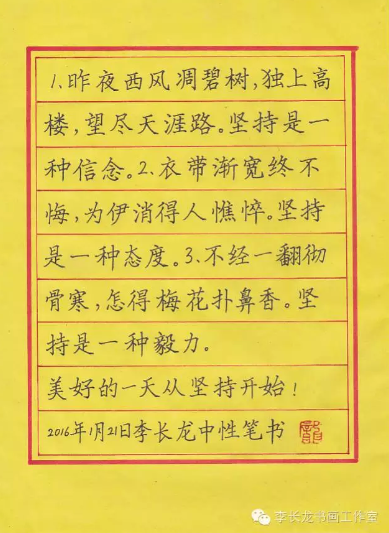 1.昨夜西风凋碧树,独上高
楼,望尽天涯路。坚持是一
种信念。2、衣带渐宽终不
悔,为伊消得人憔悴。坚持
是一种态度。3、不经一翻彻
骨寒,怎得梅花扑鼻香。坚
持是一种毅力。
美好的一天从坚持开始!
2016年1月21日李长龙中性笔书
李长龙书画工作室